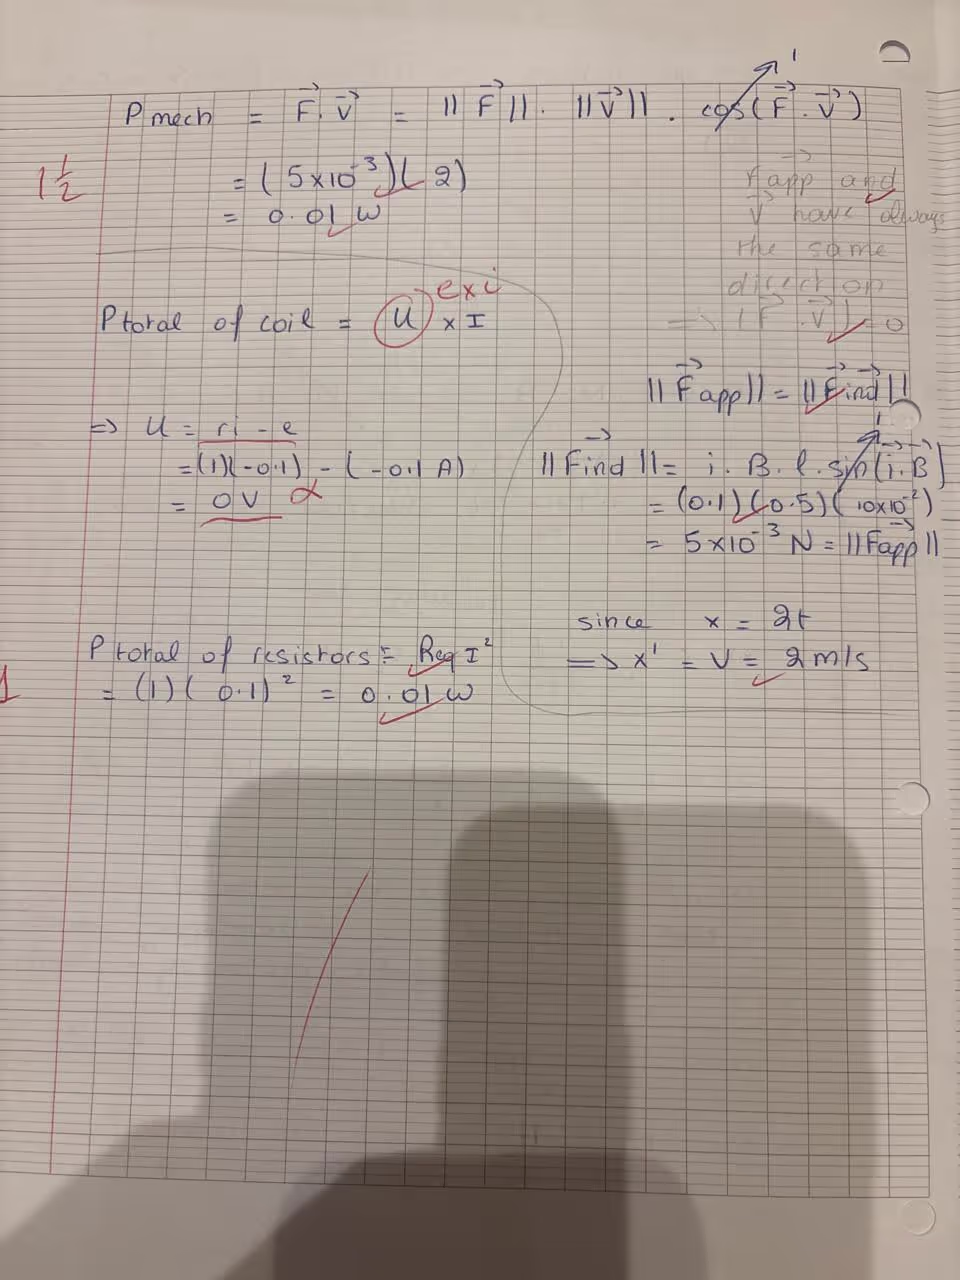 1
P mech = F⃗ . V⃗ = || F⃗ || . || V⃗ || . cos(F⃗ . V⃗)
1 1/2
= (5×10⁻³)(2)
= 0.01 W
F⃗app and
V⃗ have always
the same
direction
=> (F⃗ . V⃗) = 0
exi
P total of coil = U × I
|| F⃗app || = || F⃗ind ||
=> U = ri - e
= (1)(-0.1) - (-0.1 A)
= 0 V
1
|| F⃗ind || = i . B . l . sin(i⃗ . B⃗)
= (0.1)(0.5)(10×10⁻²)
= 5×10⁻³ N = || F⃗app ||
since x = 2t
=> x' = V = 2 m/s
P total of resistors = Req I²
1
= (1)(0.1)² = 0.01 W